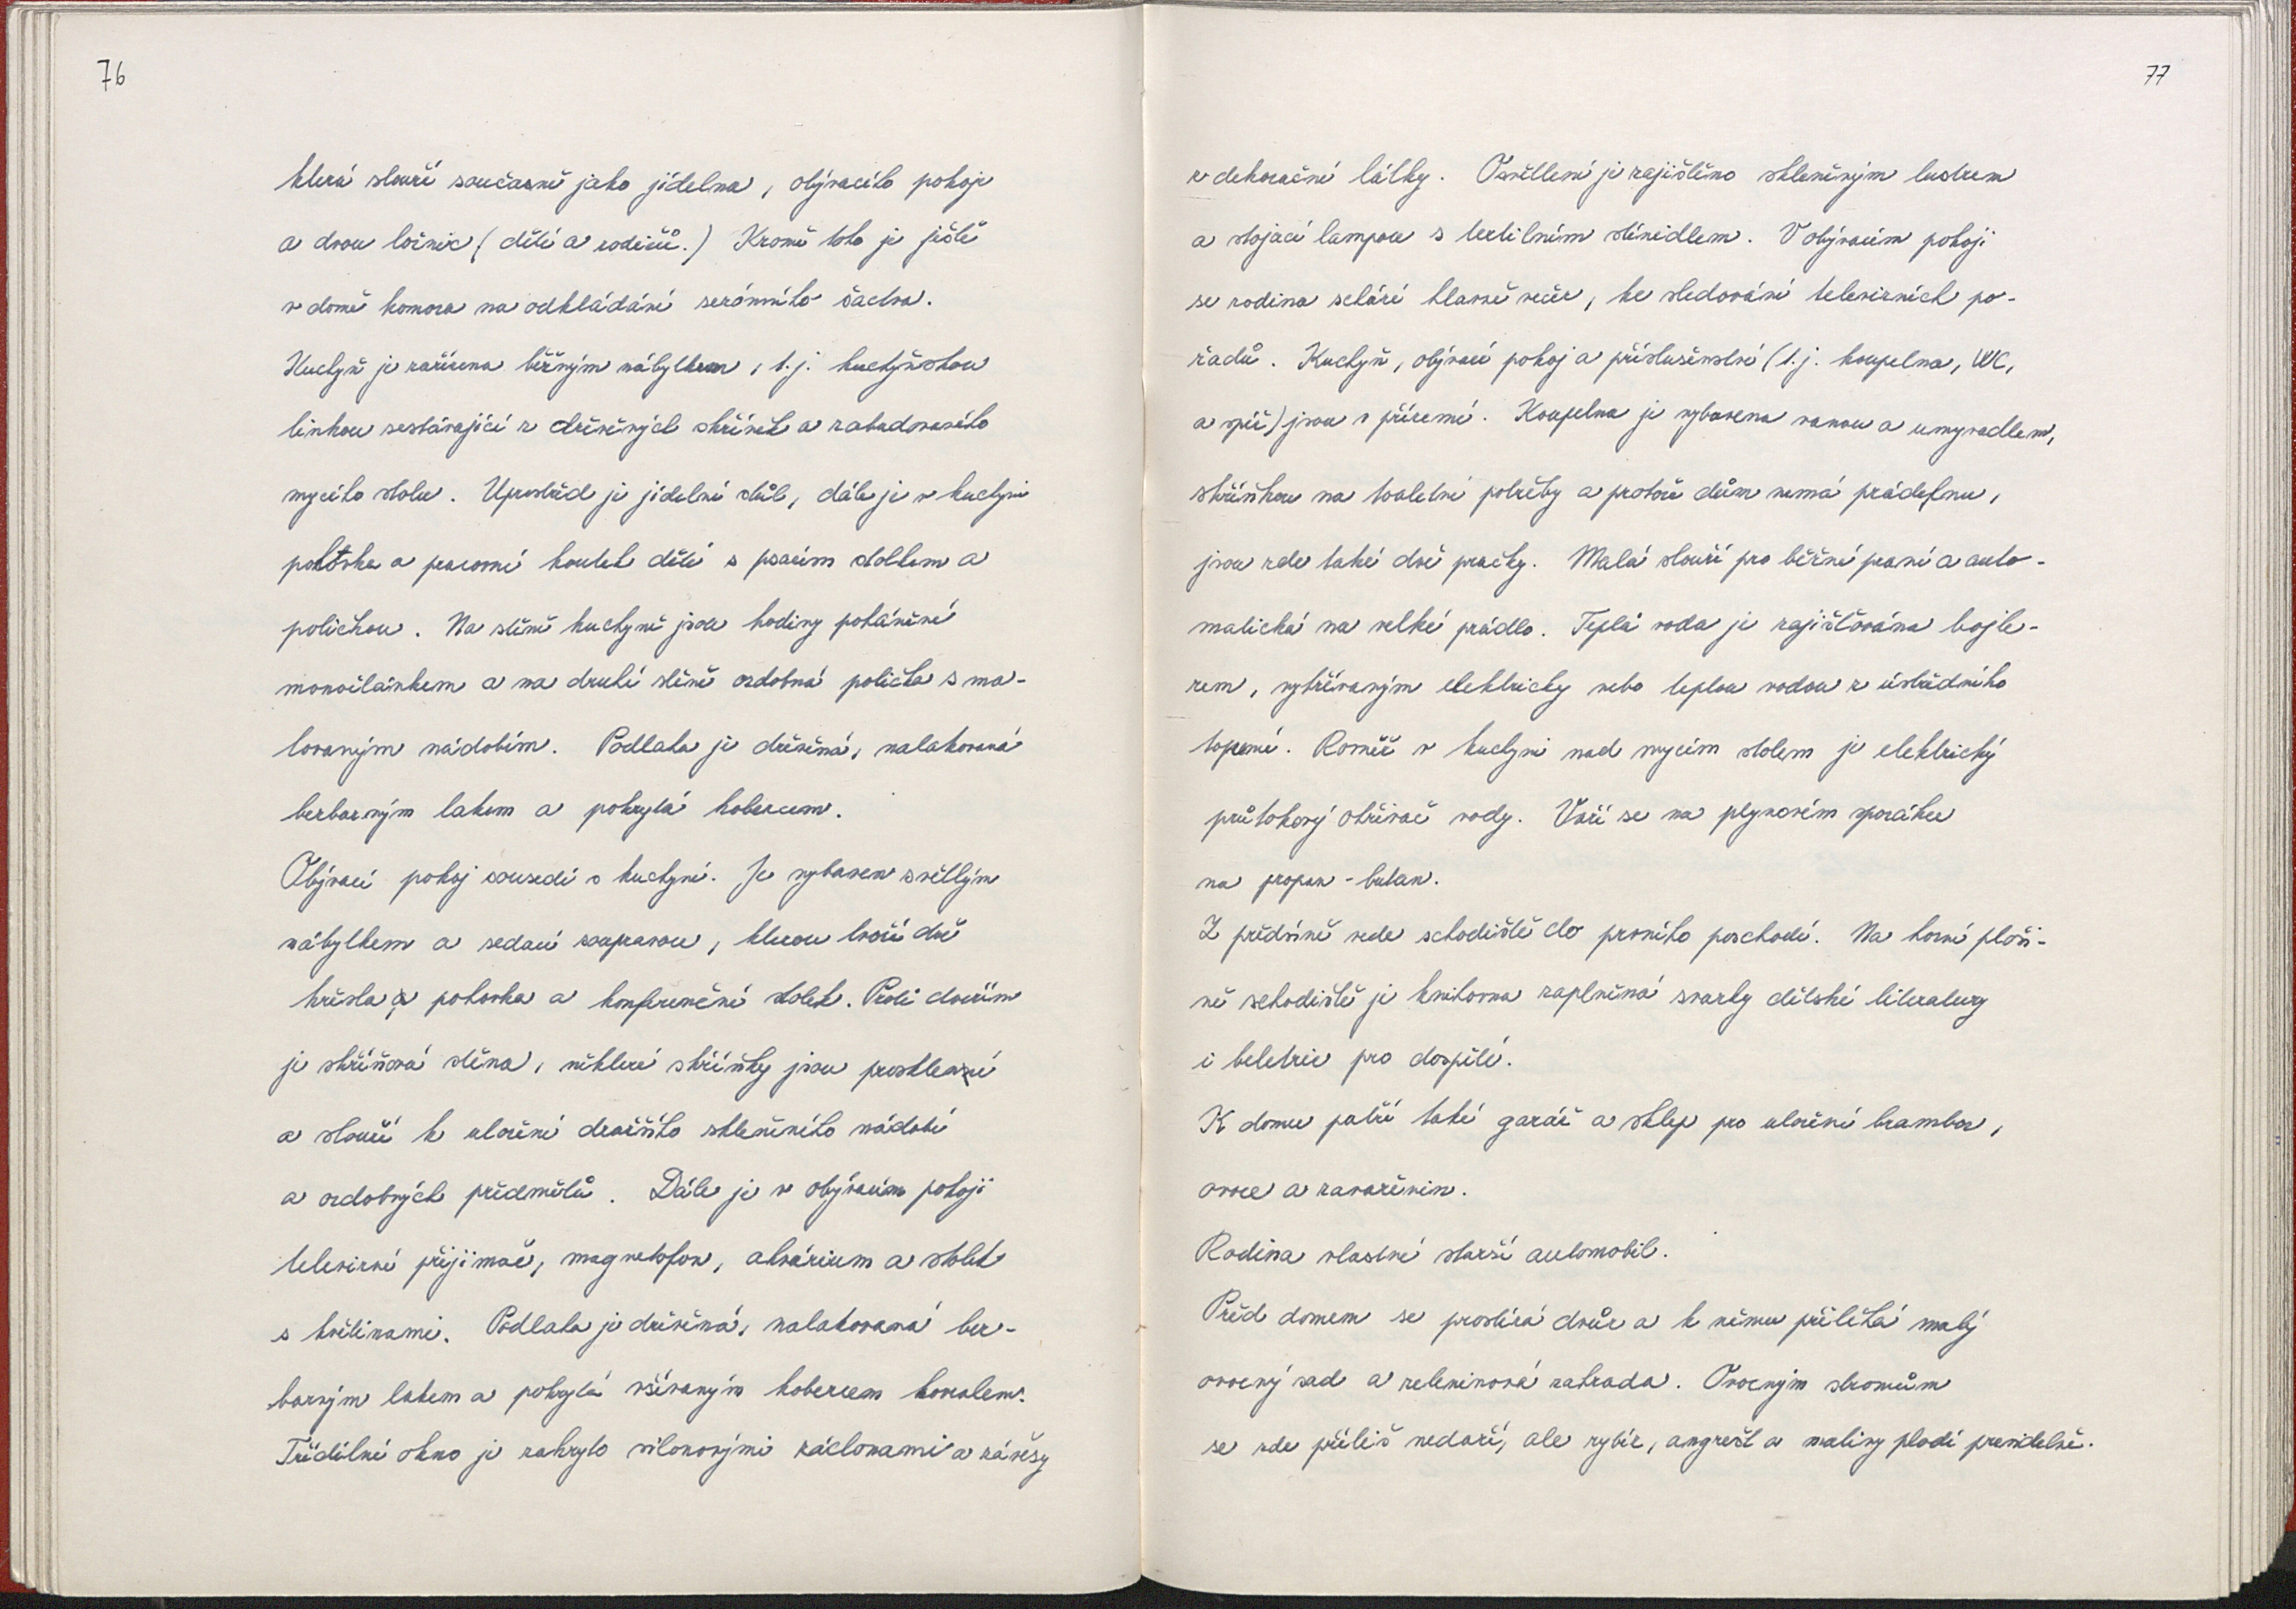 76
která slouží současně jako jídelna, obývacího pokoje
a dvou ložnic (dětí a rodičů.) Kromě toho je ještě
v domě komora na odkládání sezónního šactva.
Kuchyň je zařízena běžným nábytkem, t.j. kuchyňskou
linkou sestávající z dřevěných skříněk a zabudovaného
mycího stolu. Uprostřed je jídelní stůl, dále je v kuchyni
pohovka a pracovní koutek dětí s psacím stolkem a
poličkou. Na stěně kuchyně jsou hodiny poháněné
monočlánkem a na druhé stěně ozdobná polička s ma-
lovaným nádobím. Podlaha je dřevěná, nalakovaná
bezbarvým lakem a pokrytá kobercem.
Obývací pokoj sousedí s kuchyní. Je vybaven světlým
nábytkem a sedací soupravou, kterou tvoří dvě
křesla, pohovka a konferenční stolek. Proti dveřím
je skříňová stěna, některé skříňky jsou prosklené
a slouží k uložení dražšího skleněného nádobí
a ozdobných předmětů. Dále je v obývacím pokoji
televizní přijimač, magnetofon, akvárium a stolek
s květinami. Podlaha je dřevěná, nalakovaná bez-
barvým lakem a pokrytá všívaným kobercem kovralem.
Třídílné okno je zakryto silonovými záclonami a závěsy
77
z dekorační látky. Osvětlení je zajištěno skleněným lustrem
a stojací lampou s textilním stínidlem. V obývacím pokoji
se rodina schází hlavně večer, ke sledování televizních po-
řadů. Kuchyň, obývací pokoj a příslušenství (t.j. koupelna, WC,
a spíž) jsou v přízemí. Koupelna je vybavena vanou a umyvadlem,
skříňkou na toaletní potřeby a protože dům nemá prádelnu,
jsou zde také dvě pračky. Malá slouží pro běžné praní a auto-
matická na velké prádlo. Teplá voda je zajišťována bojle-
rem, vyhřívaným elektricky nebo teplou vodou z ústředního
topení. Rovněž v kuchyni nad mycím stolem je elektrický
průtokový ohřívač vody. Vaří se na plynovém sporáku
na propan-butan.
Z předsíně vede schodiště do prvního poschodí. Na horní ploši-
ně schodiště je knihovna zaplněná svazky dětské literatury
i beletrie pro dospělé.
K domu patří také garáž a sklep pro uložení brambor,
ovoce a zavařenin.
Rodina vlastní starší automobil.
Před domem se prostírá dvůr a k němu přiléhá malý
ovocný sad a zeleninová zahrada. Ovocným stromům
se zde příliš nedaří, ale rybíz, angrešt a maliny plodí pravidelně.